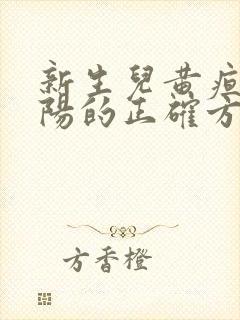 新生兒黃疸
陽的正確方
方香橙